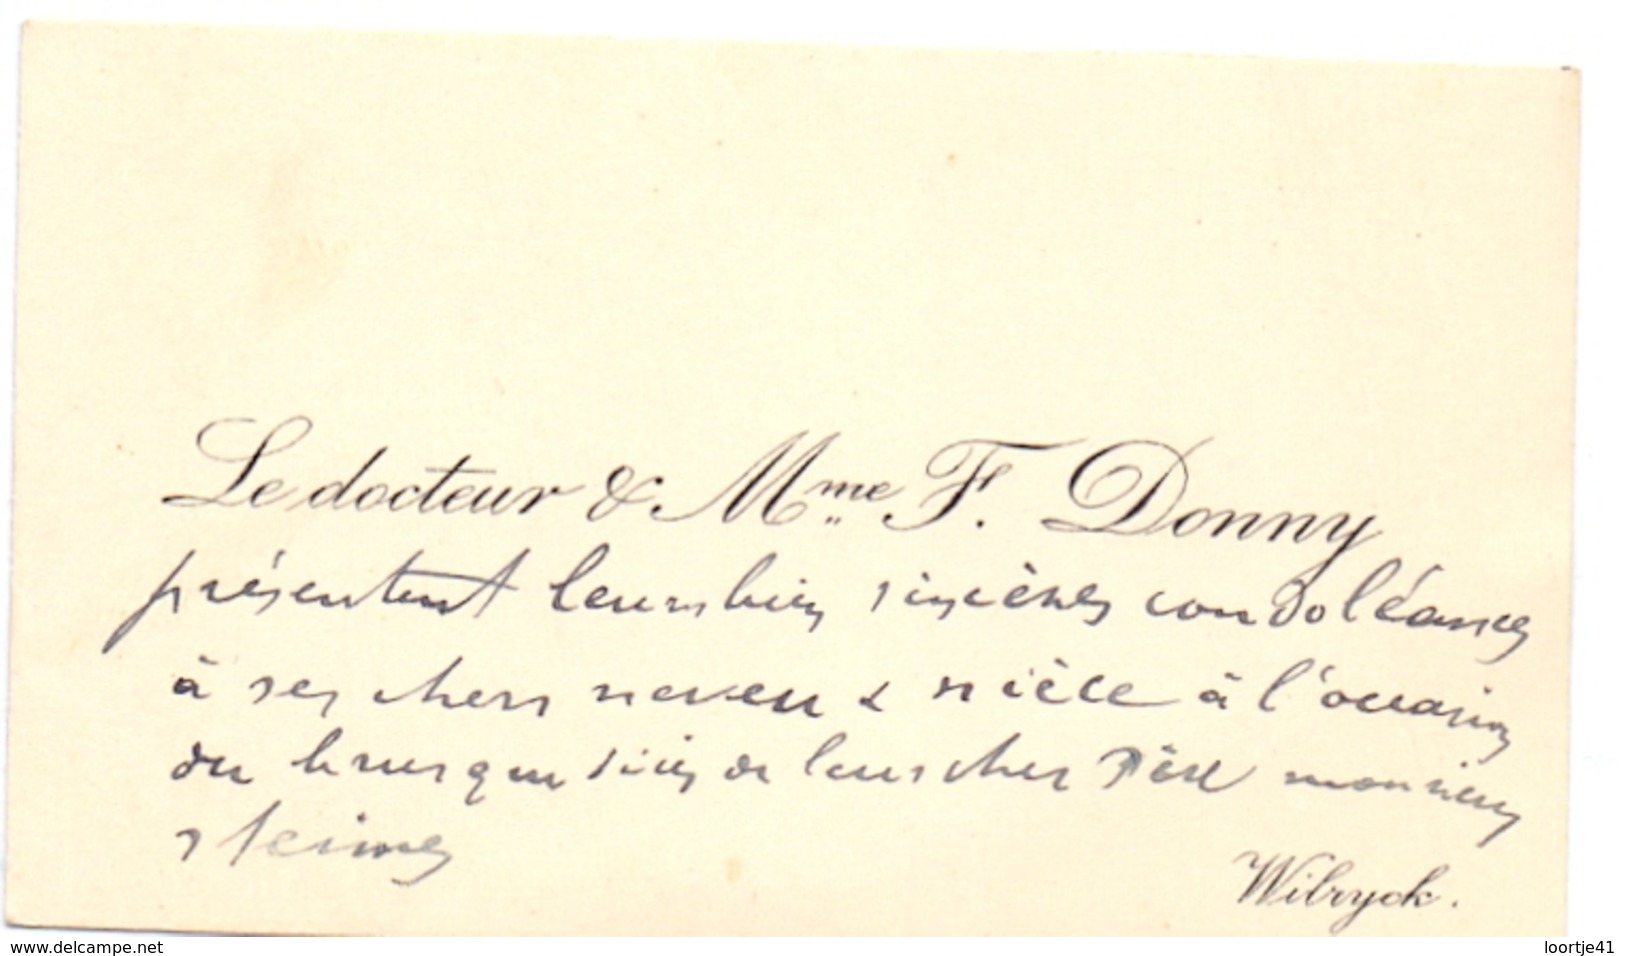 Le docteur & Mme F. Donny
présentent leurs bien sincères condoléances
à ses chers neveu & nièce à l'occasion
du brusque décès de leur cher Père monsieur
Wilryck.
www.delcampe.net
loortje41